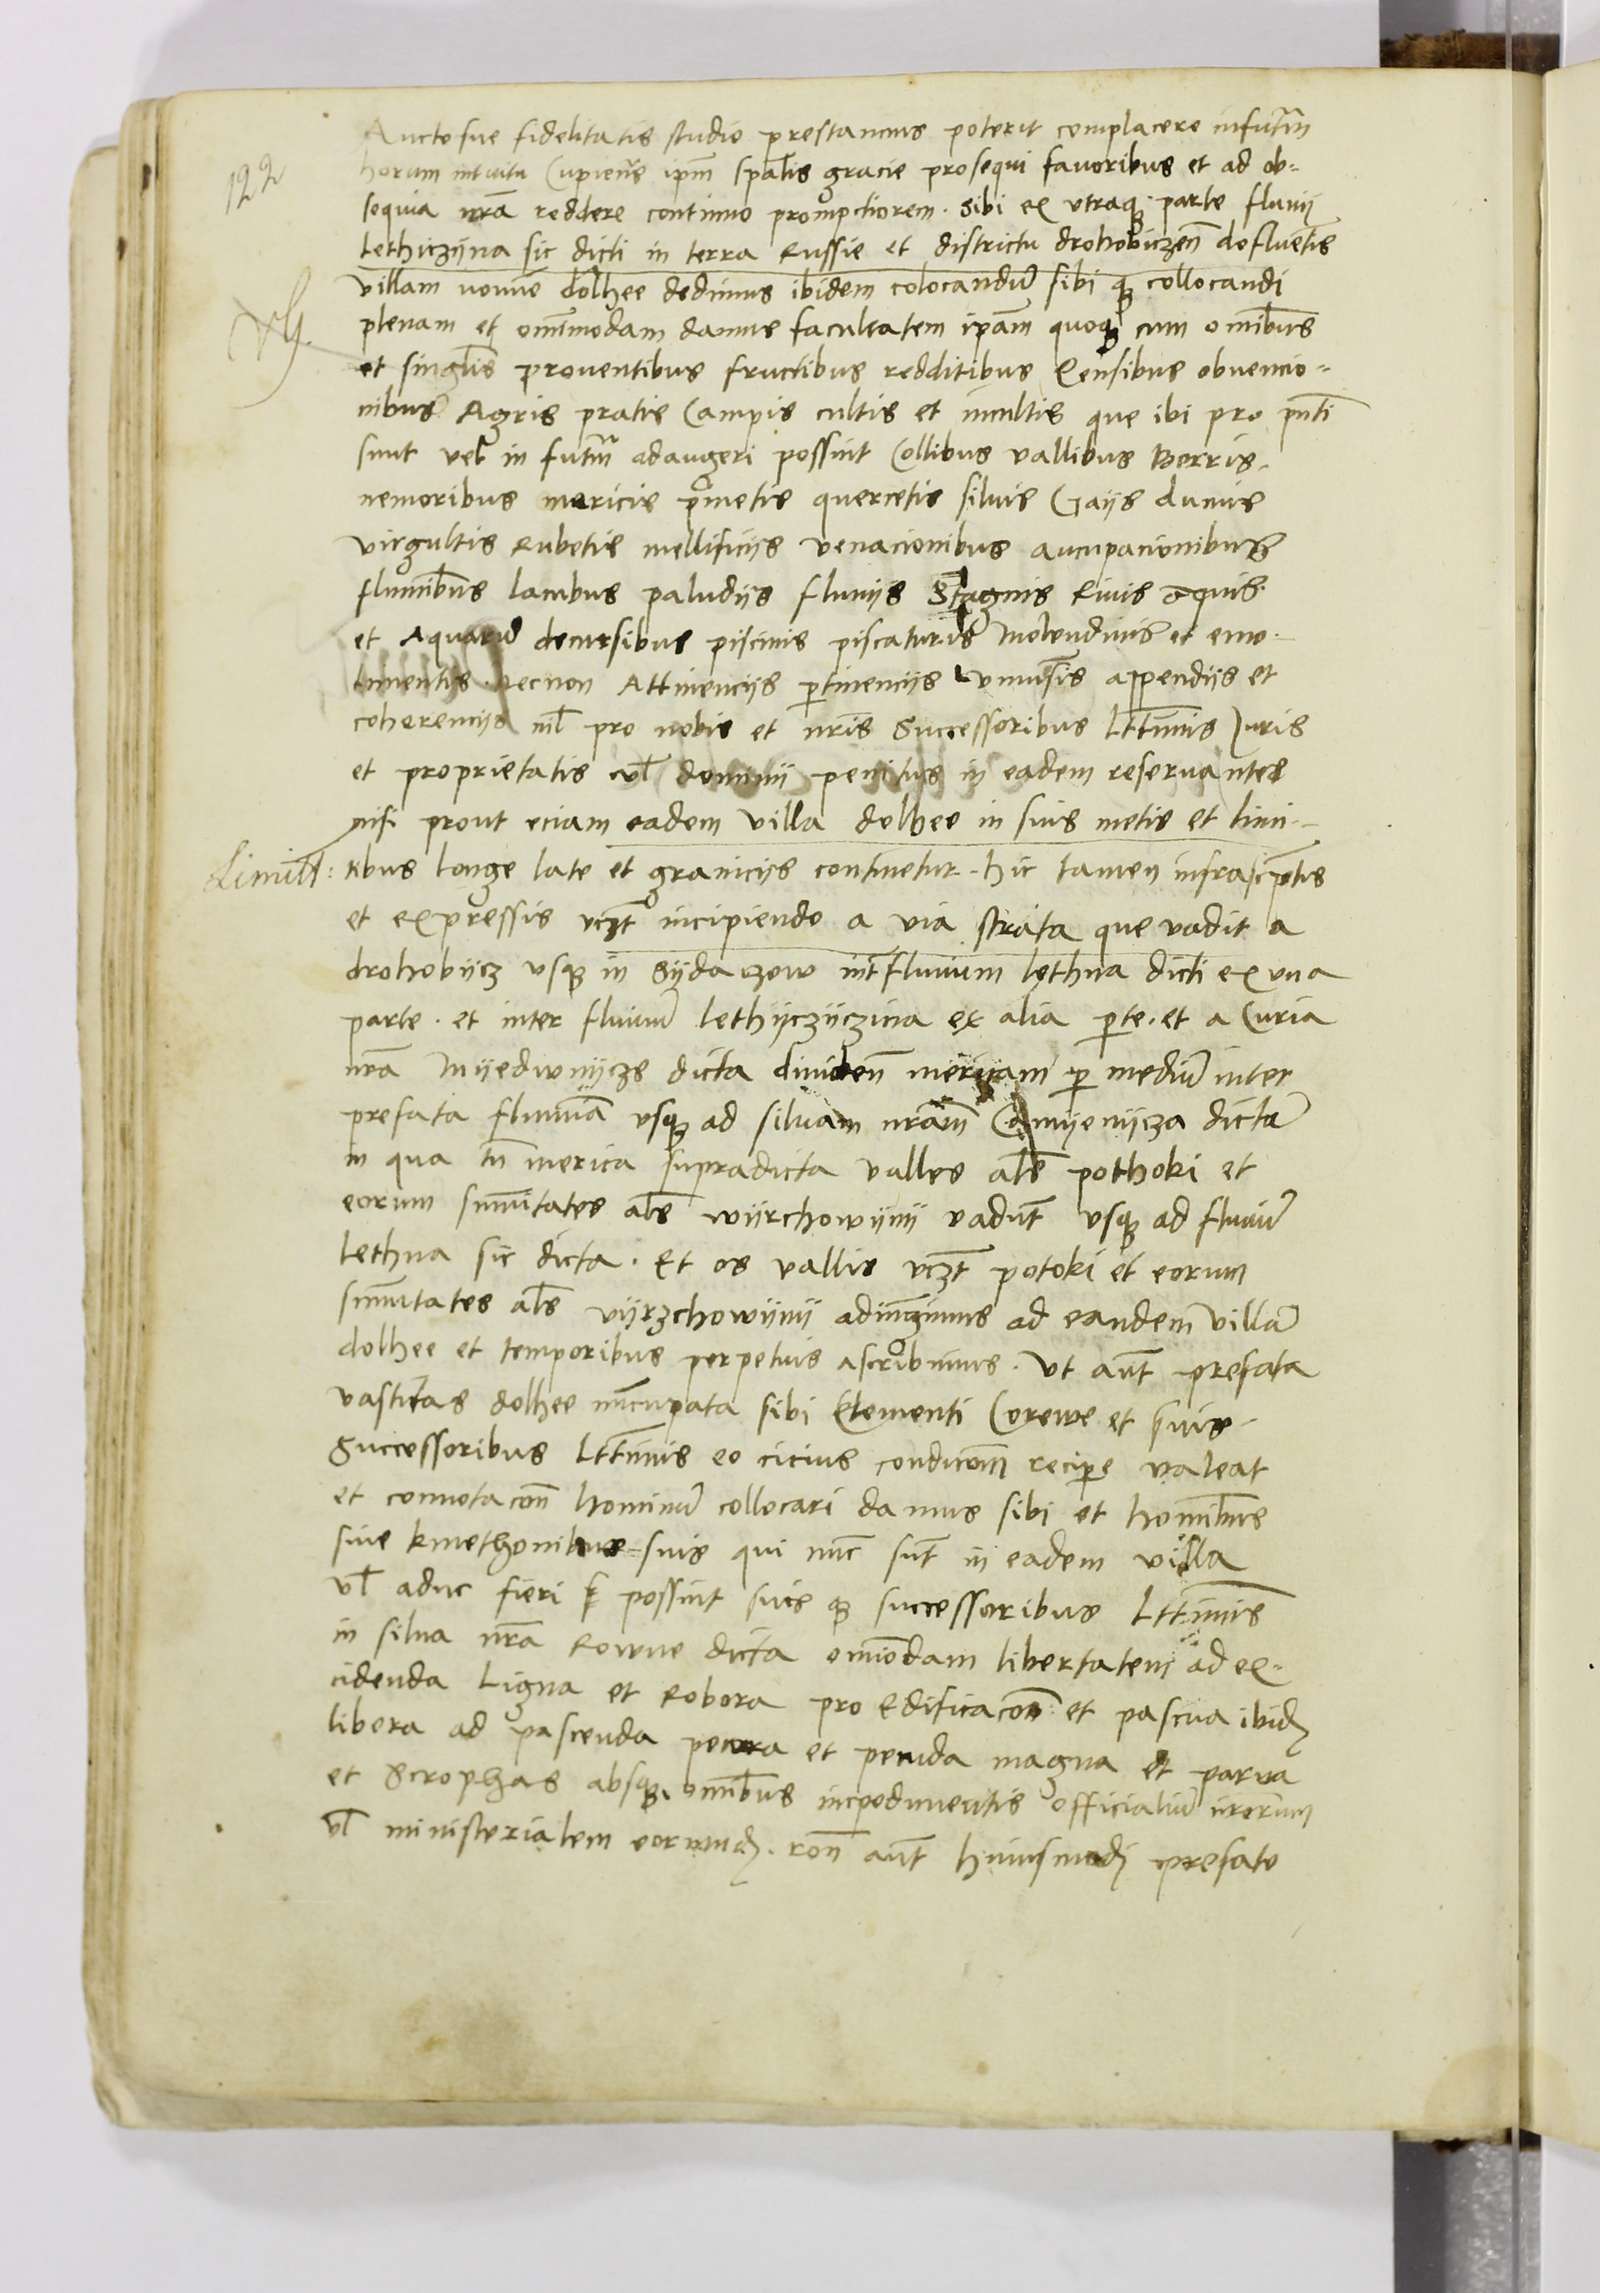 122
Aucto sue fidelitatis studio prestancius poterit complacere infuturū
horum intuitu Cupientes ipm̄ spālis gracie prosequi fauoribus et ad ob-
sequia nrā reddere continuo prompciorem. Sibi ex vtraqꝫ parte fluuij
Lethiczijna sic dicti in terra Russie et districtu drohobiczeñ defluentis
villam nomine dolhee dedimus ibidem colocandū sibi qꝫ collocandi
plenam et omīmodam damus facultatem ipām quoqꝫ cum omībus
et singlīs prouentibus fructibus redditibus Censibus obuencio-
nibus Agris pratis Campis cultis et incultis que ibi pro pn̄ti
sunt vel in futūr adaugeri possint Collibus vallibus Borris
nemoribus mericis quercetis siluis Gaijs dumis
virgultis Rubetis mellificijs venacionibus aucupacionibus
flumībus lacubus paludijs fluuijs Stagnis Riuis aquis
et Aquarū decursibus piscinis piscaturis Molendinis et emo-
lumentis. necnon Attinencijs ꝑtinencijs vniuersis appendijs et
coherencijs nil pro nobis et nrīs Successoribus Lttīmis Juris
et proprietatis vl̄ dominij penitus in eadem reseruantes
nisi prout eciam eadem villa dolhee in suis metis et limi-
Limitt: tibus longe late et granicijs continetur. hic tamen infrascriptis
et expressis vczt incipiendo a via strata que vadit a
drohobijcz vsqꝫ in Sijdaczow int̄ fluuium Lethna dicti ex vna
parte. et inter fluuiū lethijczijczina ex alia ꝑte. et a Curia
nrā Mijedwnijcze dicta diuideñ mericam ꝑ mediū inter
prefata fluuia vsqꝫ ad siluam nrām Camijenijcza dictā
in qua tn̄ merica supradicta valles als̄ pothoki et
eorum sum̄itates als̄ wijrchowijnij vadūt vsqꝫ ad fluuiū
Lethna sic dicta. Et os vallis vczt potoki et eorum
sum̄itates als̄ vijrzchowijnij adiungimus ad eandem villā
dolhee et temporibus perpetuis ascribimus. Vt aūt prefata
vastitas dolhee nūcupata sibi Clementi Corewe et suis
Successoribus Lttīmis eo cicius condicōm reciꝑe valeat
et comotacōn hominū collocari damus sibi et homībus
siue kmethonibus suis qui nūc sūt in eadem villa
vl̄ aduc fieri possint suis qꝫ successoribus Lttīmis
in silua nrā Rowne dicta omīodam libertatem ad ex-
cidenda Ligna et Robora pro Edificacōe et pascua ibidꝫ
libera ad pascenda pecora et pecuda magna et parua
et Scrophas absqꝫ omībus inpedimentis officialiū nrorum
vl̄ ministerialem eorumdꝫ. Rōn aūt huiusmodj prefato